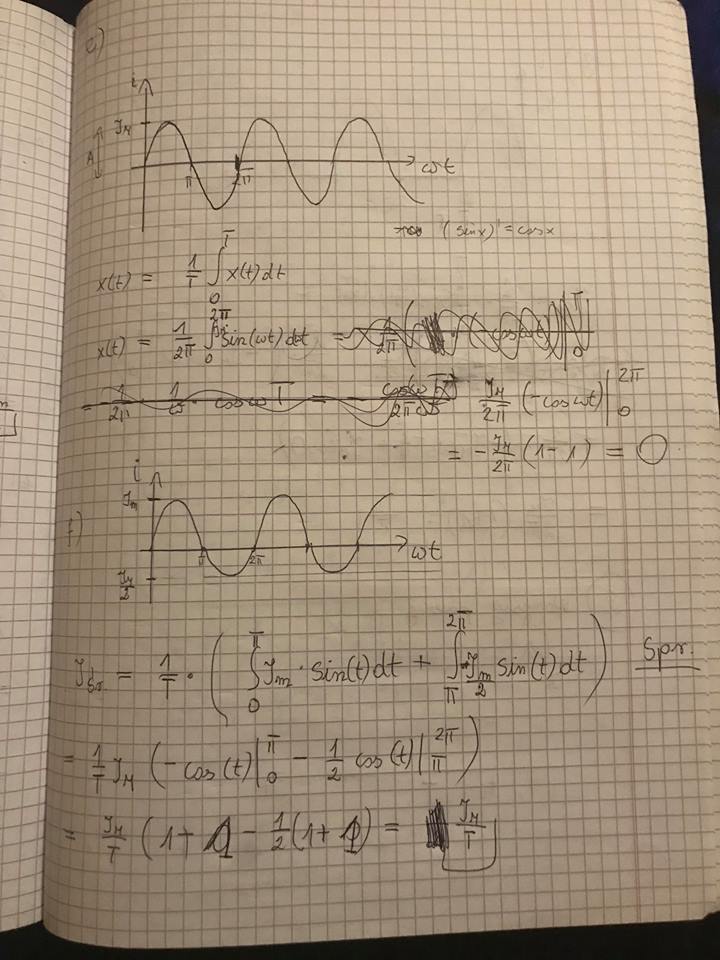 e)
i
I_M
A
π 2π ωt
(sin x)' = cos x
x(t) = 1/T ∫_0^T x(t) dt
x(t) = 1/2π ∫_0^2π I_M sin(ωt) dωt =
I_M/2π (-cos ωt) |_0^2π
= -I_M/2π (1-1) = 0
i
I_m
f)
π 2π ωt
I_M/2
I_śr. = 1/T · ( ∫_0^π I_m · sin(t) dt + ∫_π^2π I_m/2 sin(t) dt ) Spr.
= 1/T I_M ( -cos(t) |_0^π - 1/2 cos(t) |_π^2π )
= I_M/T ( 1+1 - 1/2 (1+1) = I_M/T